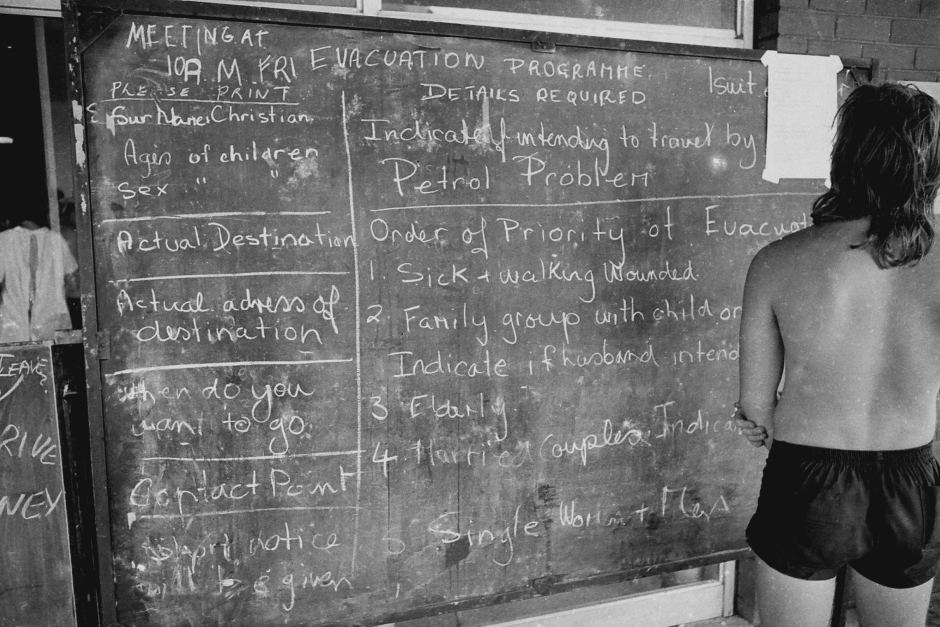 MEETING AT
10A.M. FRI
PLEASE PRINT
SurName, Christian
Ages of children
Sex " "
Actual Destination
Actual adress of
destination
When do you
want to go.
Contact Point
notice
will be given
EVACUATION PROGRAMME.
DETAILS REQUIRED
1suit
Indicate if intending to travel by
Petrol Problem
Order of Priority of Evacuat
1. Sick + walking Wounded
2. Family group with child or
Indicate if husband intend
3 Elderly
4. Married Couples. Indica
5 Single Women + Men
LEAVE
RIVE
NEY